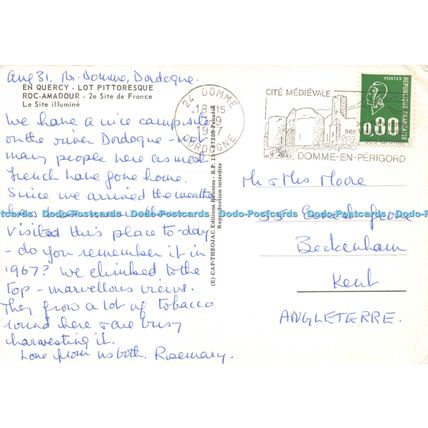 Aug 31. Nr. Domme, Dordogne.
EN QUERCY - LOT PITTORESQUE
ROC-AMADOUR - 2e Site de France
Le Site illuminé
We have a nice campsite
on the river Dordogne - not
many people here as most
French have gone home.
Since we arrived the weather
has
visited this place to-day
- do you remember it in
1967? We climbed to the
top - marvellous views.
They grow a lot of tobacco
round here & are busy
harvesting it.
Love from us both. Rosemary.
(E) CAP-THEOJAC Editions
Reproduction interdite
24 DOMME
DORDOGNE
CITÉ MÉDIÉVALE
DOMME-EN-PÉRIGORD
POSTES
REPUBLIQUE FRANÇAISE
0,80
Mr & Mrs Moore
Beckenham
Kent
ANGLETERRE.
Dodo-Postcards - Dodo-Postcards - Dodo-Postcards - Dodo-Postcards - Dodo-Postcards